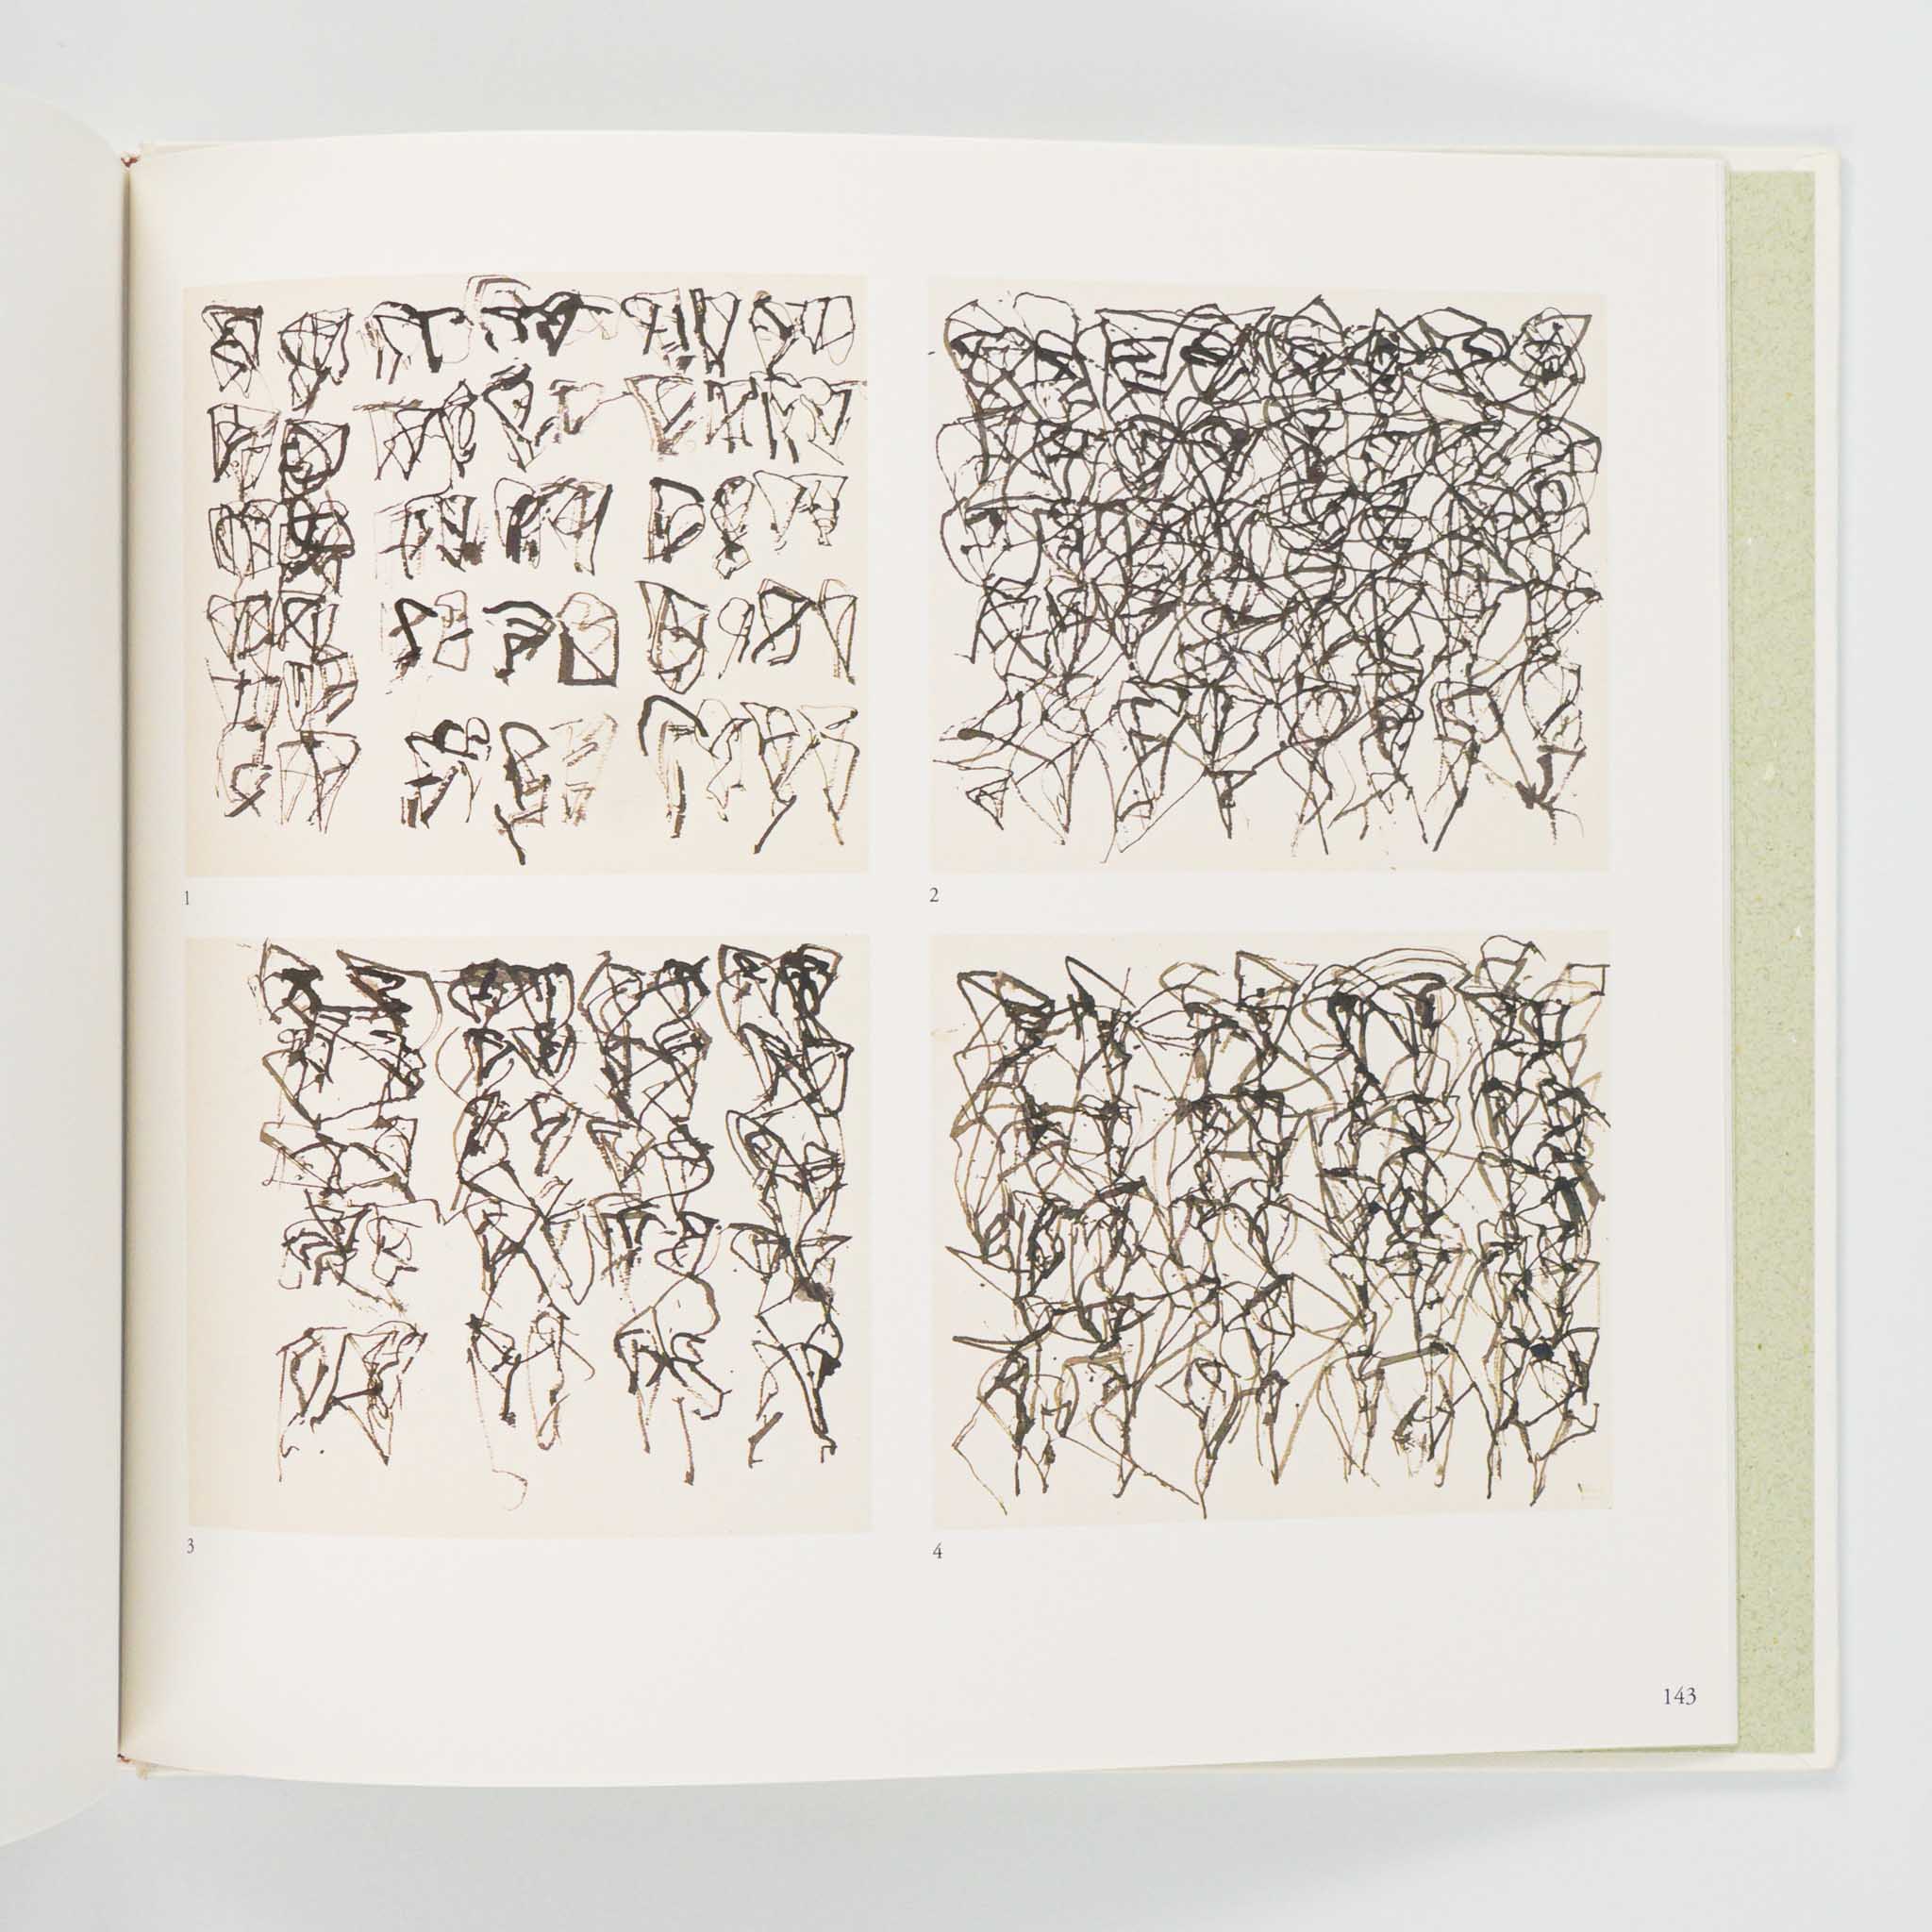 1
2
3
4
143